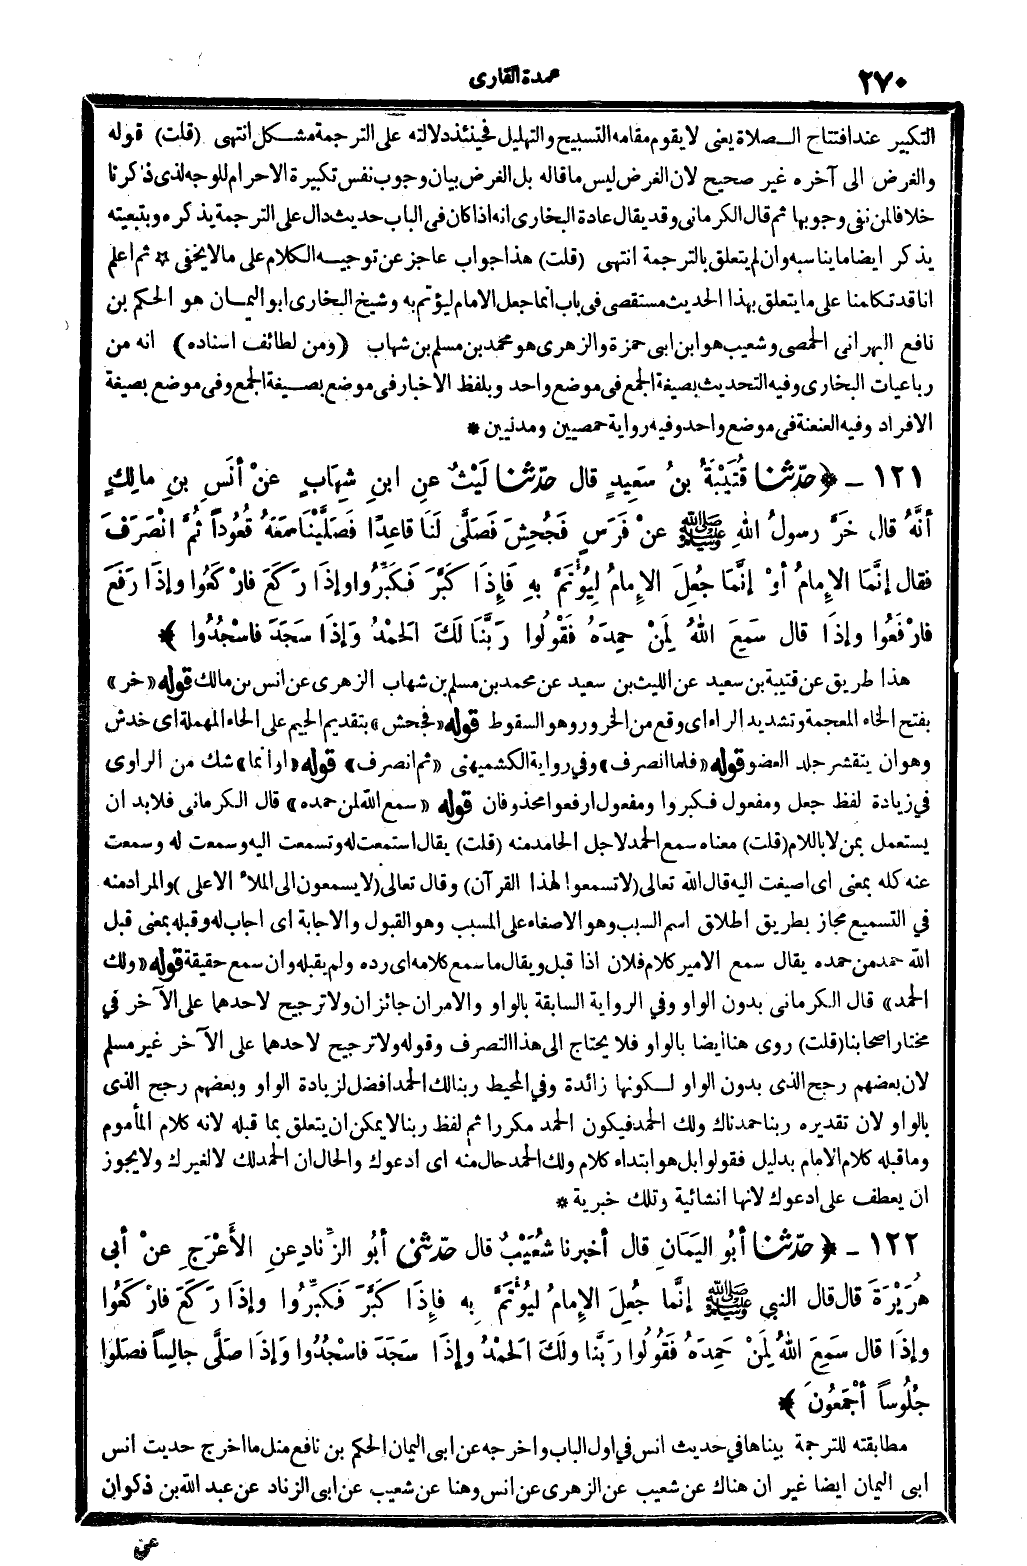 ٢٧٠
عمدة القارى
التكبير عند افتتاح الصلاة يعنى لا يقوم مقامه التسبيح والتهليل فحينئذ دلالته على الترجمة مشكل انتهى (قلت) قوله
والغرض الى آخره غير صحيح لان الغرض ليس ما قاله بل الغرض بيان وجوب نفس تكبيرة الاحرام للوجه لذى ذكرنا
خلافا لمن نفى وجوبها ثم قال الكرمانى وقد يقال عادة البخارى انه اذا كان فى الباب حديث دال على الترجمة يذكره وبتبعيته
يذكر ايضا ما يناسبه وان لم يتعلق بالترجمة انتهى (قلت) هذا جواب عاجز عن توجيه الكلام على ما لا يخفى * ثم اعلم
انا قد تكلمنا على ما يتعلق بهذا الحديث مستقصى فى باب انما جعل الامام ليؤتم به وشيخ البخارى ابو اليمان هو الحكم بن
نافع البهرانى الحمصى وشعيب هو ابن ابى حمزة والزهرى هو محمد بن مسلم بن شهاب (ومن لطائف اسناده) انه من
رباعيات البخارى وفيه التحديث بصيغة الجمع فى موضع واحد وبلفظ الاخبار فى موضع بصيغة الجمع وفى موضع بصيغة
الافراد وفيه العنعنة فى موضع واحد وفيه رواية حمصيين ومدنيين *
١٢١ - ﴿ حدّثنا قُتَيْبَةُ بنُ سَعِيدٍ قال حدّثنا لَيْثٌ عنِ ابنِ شِهَابٍ عنْ أنَسِ بنِ مالِكٍ
أنَّهُ قال خَرَّ رسولُ اللهِ ﷺ عنْ فَرَسٍ فَجُحِشَ فَصَلَّى لَنَا قاعِدًا فَصَلَّيْنَا مَعَهُ قُعُوداً ثُمَّ انْصَرَفَ
فقال إنَّمَا الإِمامُ أوْ إنَّمَا جُعِلَ الإِمامُ لِيُؤْتَمَّ بهِ فَإِذَا كَبَّرَ فَكَبِّرُوا وإذَا رَكَعَ فارْكَعُوا وإذَا رَفَعَ
فارْفَعُوا وإذَا قال سَمِعَ اللهُ لِمَنْ حمِدَهُ فَقُولُوا رَبَّنَا لَكَ الحَمْدُ وَإذَا سَجَدَ فاسْجُدُوا ﴾
هذا طريق عن قتيبة بن سعيد عن الليث بن سعيد عن محمد بن مسلم بن شهاب الزهرى عن انس بن مالك قوله «خر»
بفتح الخاء المعجمة وتشديد الراء اى وقع من الخرور وهو السقوط قوله «فجحش» بتقديم الجيم على الحاء المهملة اى خدش
وهو ان يتقشر جلد العضو قوله «فلما انصرف» وفي رواية الكشميهنى «ثم انصرف» قوله «او انما» شك من الراوى
في زيادة لفظ جعل ومفعول فكبروا ومفعول ارفعوا محذوفان قوله «سمع الله لمن حمده» قال الكرمانى فلابد ان
يستعمل بمن لا باللام (قلت) معناه سمع الحمد لاجل الحامد منه (قلت) يقال استمعت له وتسمعت اليه وسمعت له وسمعت
عنه كله بمعنى اى اصغيت اليه قال الله تعالى (لا تسمعوا لهذا القرآن) وقال تعالى (لا يسمعون الى الملاء الاعلى) والمراد منه
في التسميع مجاز بطريق اطلاق اسم السبب وهو الاصغاء على المسبب وهو القبول والاجابة اى اجاب له وقبله بمعنى قبل
الله حمد من حمده يقال سمع الامير كلام فلان اذا قبل ويقال ما سمع كلامه اى رده ولم يقبله وان سمع حقيقة قوله «ولك
الحمد» قال الكرمانى بدون الواو وفي الرواية السابقة بالواو والامران جائزان ولا ترجيح لاحدهما على الآخر في
مختار اصحابنا (قلت) روى هنا ايضا بالواو فلا يحتاج الى هذا التصرف وقوله ولا ترجيح لاحدهما على الآخر غير مسلم
لان بعضهم رجح الذى بدون الواو لكونها زائدة وفي المحيط ربنا لك الحمد افضل لزيادة الواو وبعضهم رجح الذى
بالواو لان تقديره ربنا حمدناك ولك الحمد فيكون الحمد مكررا ثم لفظ ربنا لا يمكن ان يتعلق بما قبله لانه كلام المأموم
وما قبله كلام الامام بدليل فقولوا بل هو ابتداء كلام ولك الحمد حال منه اى ادعوك والحال ان الحمد لك لا لغيرك ولا يجوز
ان يعطف على ادعوك لانها انشائية وتلك خبرية *
١٢٢ - ﴿ حدّثنا أبُو اليَمَانِ قال أخبرنا شُعَيْبٌ قال حدّثنى أبُو الزِّنادِ عنِ الأعْرَجِ عنْ أبى
هُرَيْرَةَ قال قال النبي ﷺ إنَّما جُعِلَ الإِمامُ لِيُؤْتَمَّ بِهِ فَإِذَا كَبَّرَ فَكَبِّرُوا وإذَا رَكَعَ فارْكَعُوا
وإذَا قال سَمِعَ اللهُ لِمَنْ حَمِدَهُ فَقُولُوا رَبَّنَا ولَكَ الحَمْدُ وإذَا سَجَدَ فاسْجُدُوا وَإذَا صلَّى جالِساً فصَلوا
جُلُوساً أجْمَعُونَ ﴾
مطابقته للترجمة بيناها في حديث انس في اول الباب واخرجه عن ابى اليمان الحكم بن نافع مثل ما اخرج حديث انس
ابى اليمان ايضا غير ان هناك عن شعيب عن الزهرى عن انس وهنا عن شعيب عن ابى الزناد عن عبد الله بن ذكوان
عن